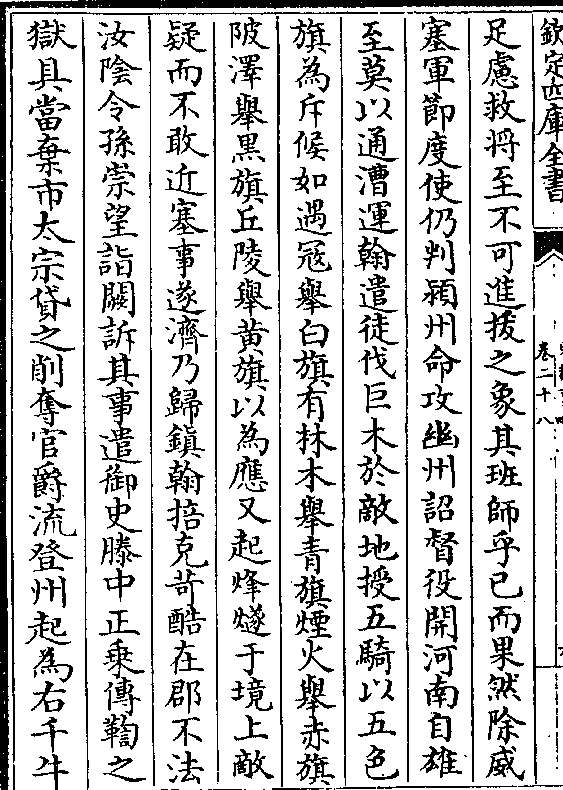 欽定四庫全書
卷二十八
足慮救将至不可進援之象其班師乎已而果然除威
塞軍節度使仍判潁州命攻幽州詔督役開河南自雄
至莫以通漕運翰遣徒伐巨木於敵地授五騎以五色
旗為斥候如遇冦舉白旗有林木舉青旗煙火舉赤旗
陂澤舉黒旗丘陵舉黄旗以為應又起烽燧于境上敵
疑而不敢近塞事遂濟乃歸鎮翰掊克苛酷在郡不法
汝陰令孫崇望詣闕訴其事遣御史滕中正乗傳鞫之
獄具當棄市太宗貸之削奪官爵流登州起為右千牛